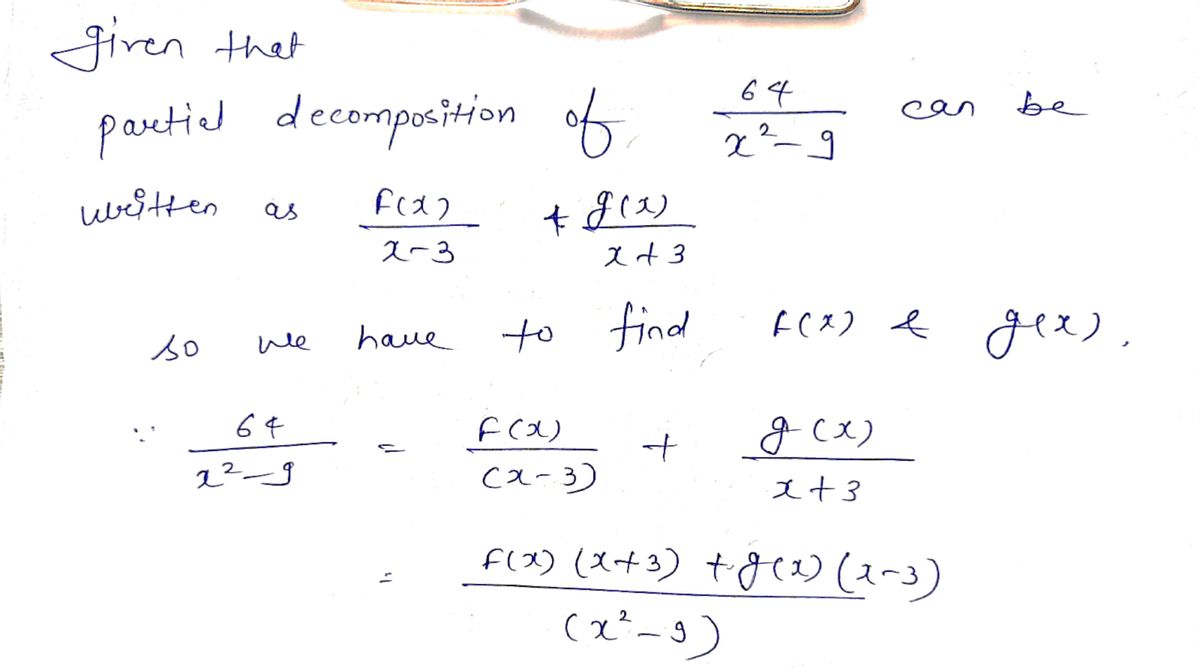 Given that
partial decomposition of 64/(x² - 9) can be
written as f(x)/(x-3) + g(x)/(x+3)
so we have to find f(x) & g(x).
∵ 64/(x² - 9) = f(x)/(x-3) + g(x)/(x+3)
= (f(x)(x+3) + g(x)(x-3))/(x² - 9)